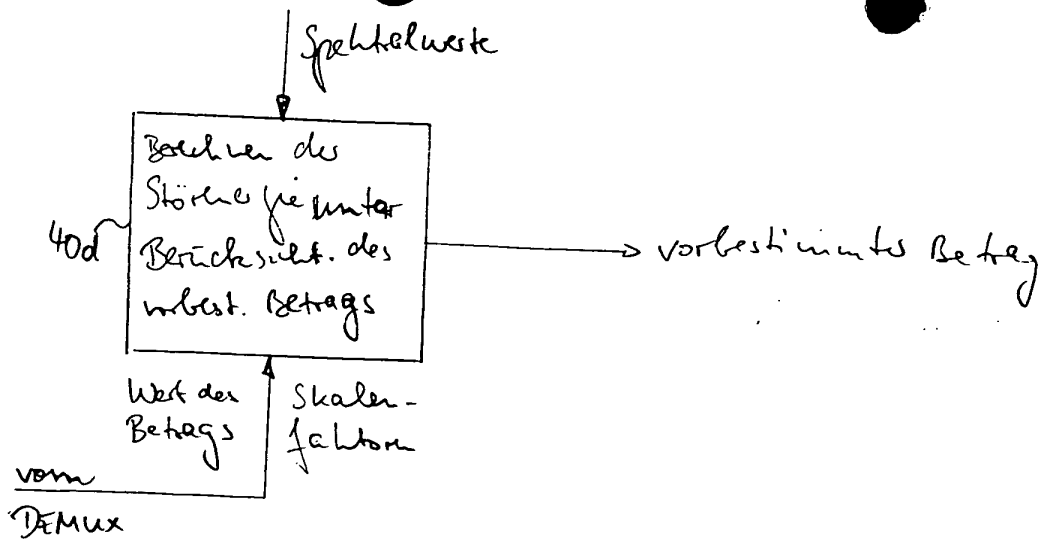 Spektralwerte
Berechnen der
Störenergie unter
Berücksicht. des
vorbest. Betrags
40d
vorbestimmter Betrag
Wert des
Betrags
Skalen-
faktoren
vom
DEMUX